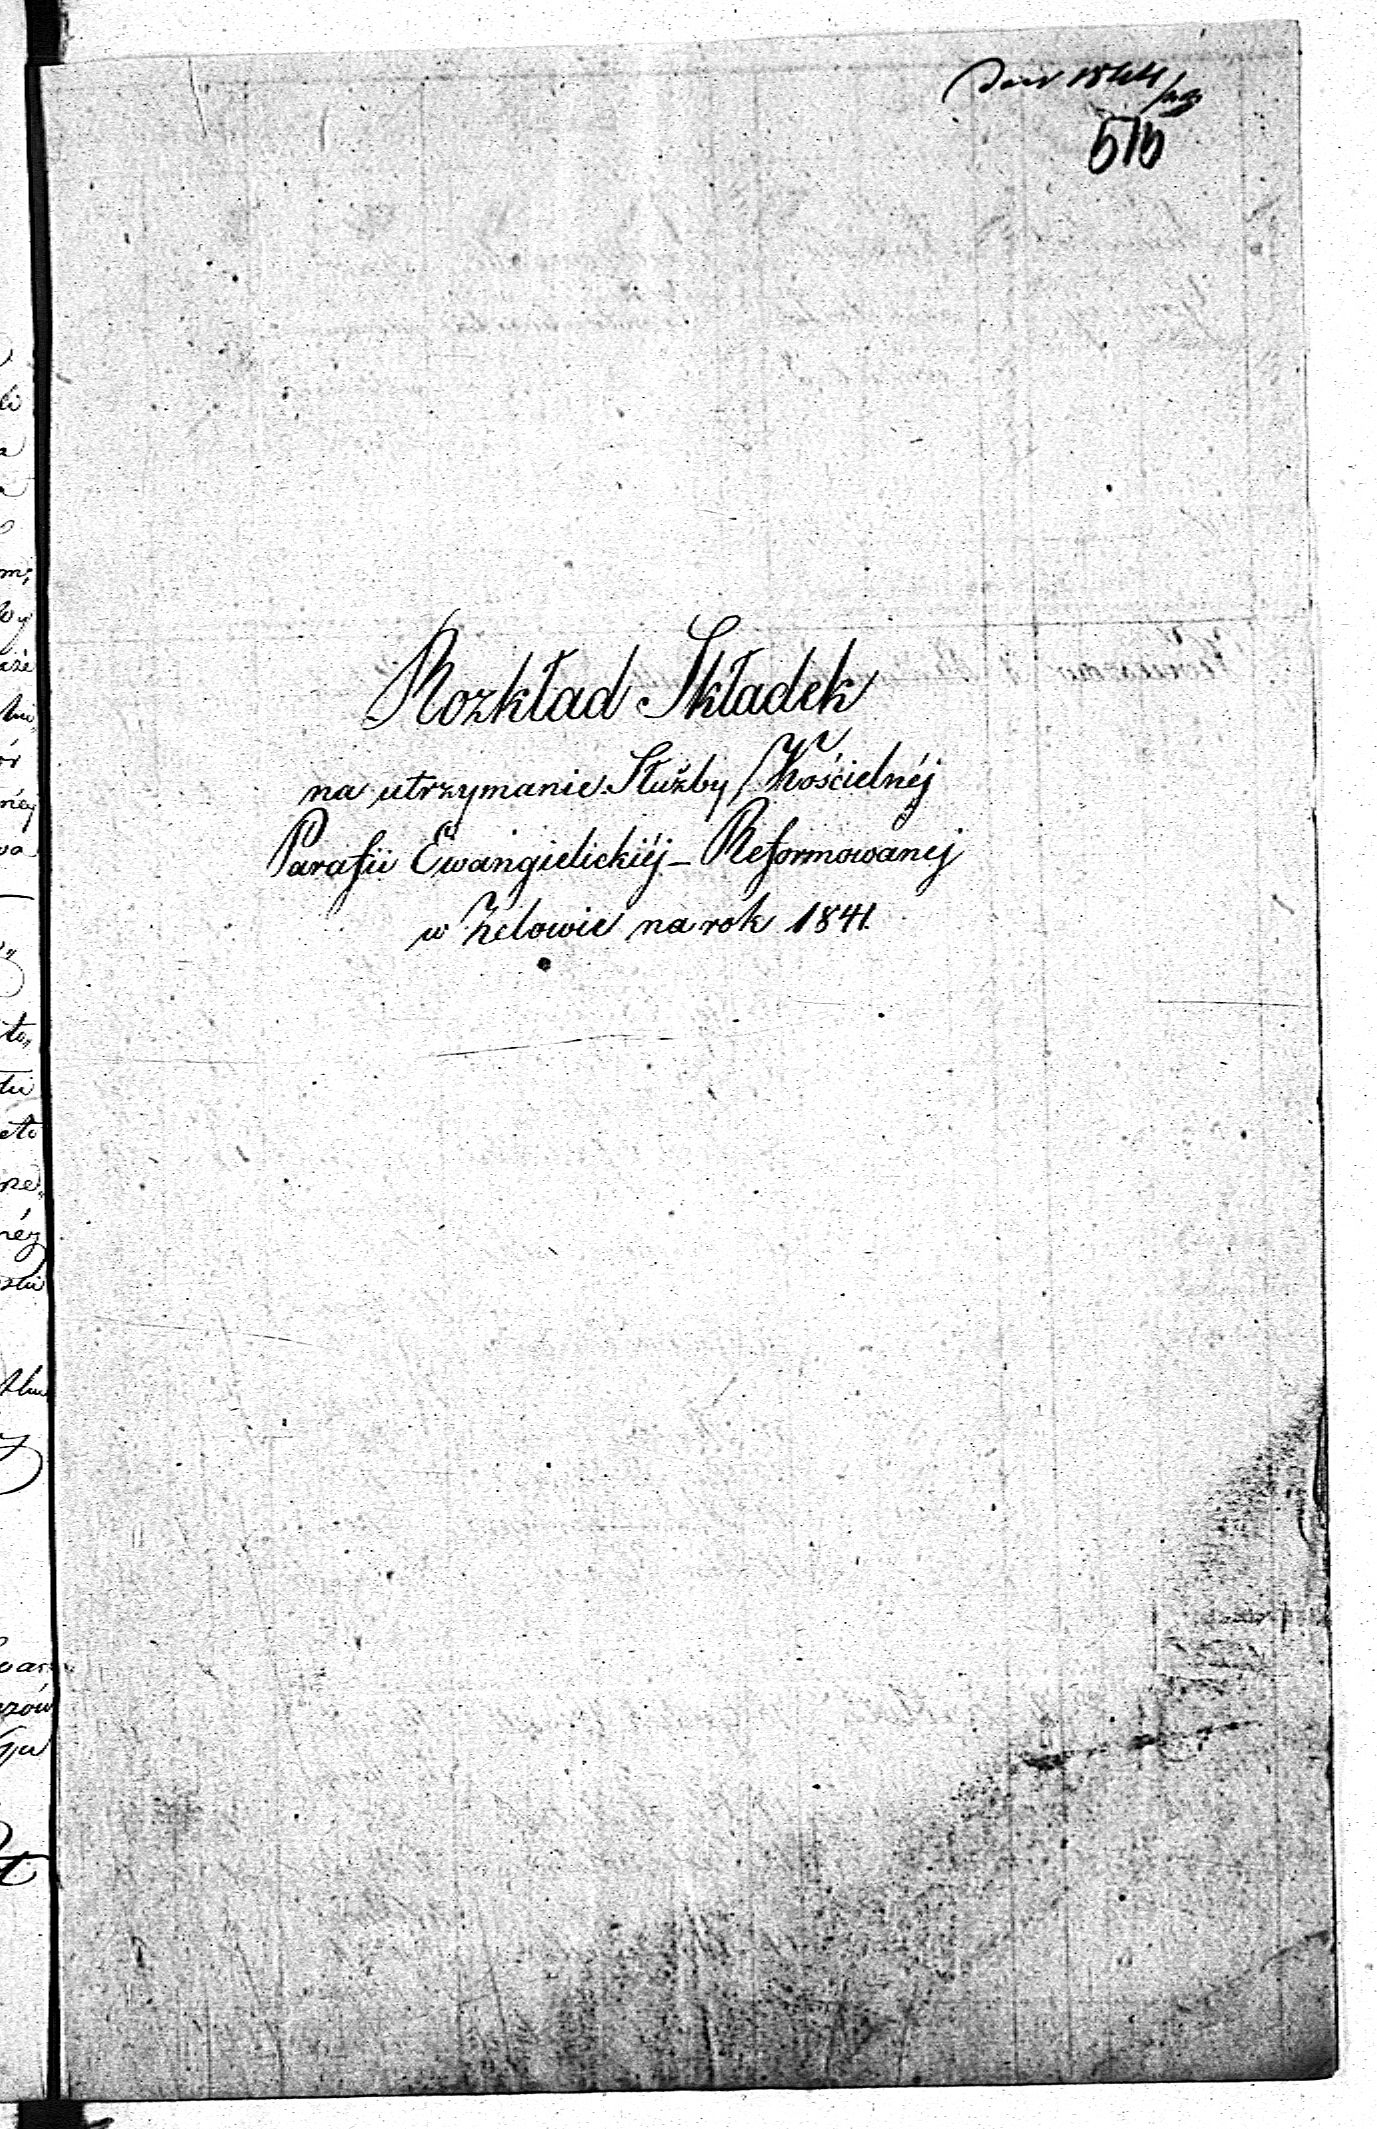 1844
515
Rozkład Składek
na utrzymanie Służby Kościelnéj
Parafii Ewangielickiéj - Reformowanéj
w Zelowie na rok 1841.